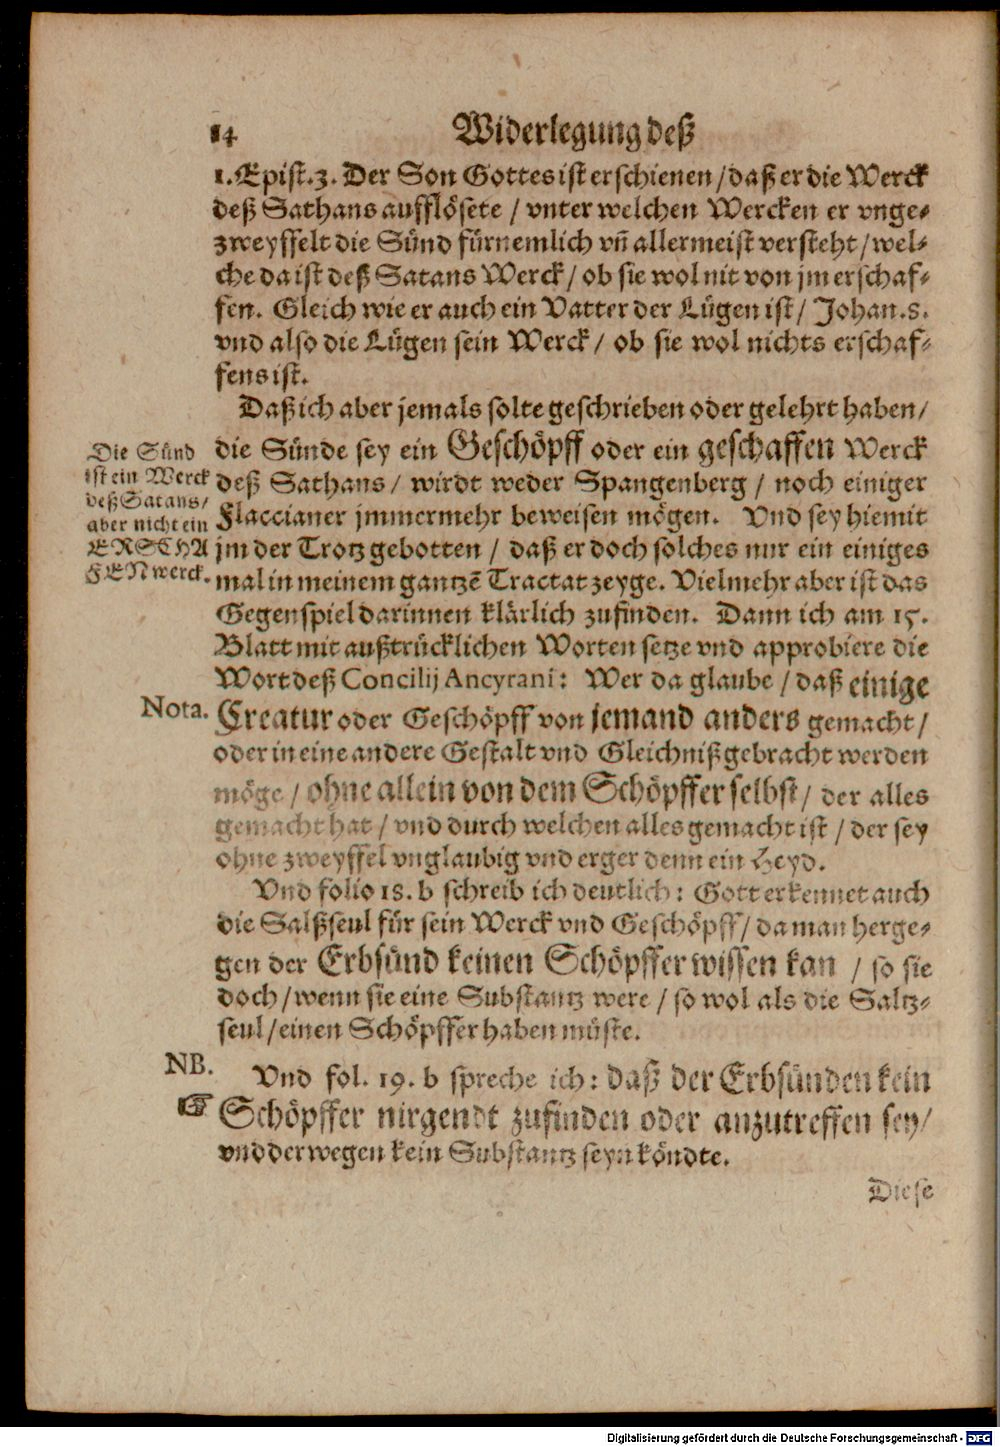 14 Widerlegung deß
1. Epist. 3. Der Son Gottes ist erschienen / daß er die Werck
deß Sathans aufflösete / vnter welchen Wercken er vnge-
zweyffelt die Sünd fürnemlich vñ allermeist versteht / wel-
che da ist deß Satans Werck / ob sie wol nit von jm erschaf-
fen. Gleich wie er auch ein Vatter der Lügen ist / Johan. 8.
vnd also die Lügen sein Werck / ob sie wol nichts erschaf-
fens ist.
Daß ich aber jemals solte geschrieben oder gelehrt haben /
die Sünde sey ein Geschöpff oder ein geschaffen Werck
deß Sathans / wirdt weder Spangenberg / noch einiger
Flaccianer jmmermehr beweisen mögen. Vnd sey hiemit
jm der Trotz gebotten / daß er doch solches nur ein einiges
mal in meinem gantzē Tractat zeyge. Vielmehr aber ist das
Gegenspiel darinnen klärlich zufinden. Dann ich am 15.
Blatt mit außtrücklichen Worten setze vnd approbiere die
Wort deß Concilij Ancyrani: Wer da glaube / daß einige
Creatur oder Geschöpff von jemand anders gemacht /
oder in eine andere Gestalt vnd Gleichniß gebracht werden
möge / ohne allein von dem Schöpffer selbst / der alles
gemacht hat / vnd durch welchen alles gemacht ist / der sey
ohne zweyffel vnglaubig vnd erger denn ein Heyd.
Vnd folio 18. b schreib ich deutlich: Gott erkennet auch
die Salßseul für sein Werck vnd Geschöpff / da man herge-
gen der Erbsünd keinen Schöpffer wissen kan / so sie
doch / wenn sie eine Substantz were / so wol als die Saltz-
seul / einen Schöpffer haben müste.
Vnd fol. 19. b spreche ich: daß der Erbsünden kein
Schöpffer nirgendt zufinden oder anzutreffen sey /
vnd derwegen kein Substantz seyn köndte.
Diese
Die Sünd
ist ein Werck
deß Satans /
aber nicht ein
ERSCHA
FEN werck.
Nota.
NB.
☞
Digitalisierung gefördert durch die Deutsche Forschungsgemeinschaft - DFG